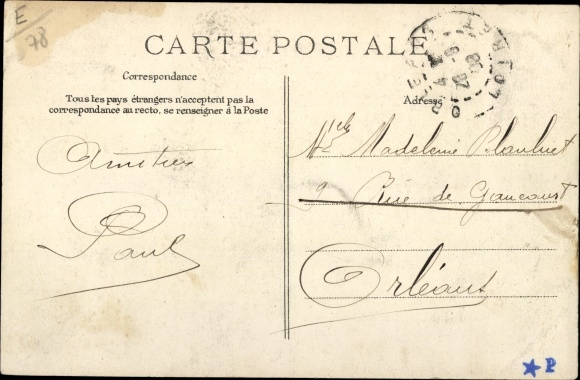 E
78
CARTE POSTALE
Correspondance
Tous les pays étrangers n'acceptent pas la
correspondance au recto, se renseigner à la Poste
Adresse
Amitiés
Paul
Mlle Madeleine
de Gaucourt
Orléans
P